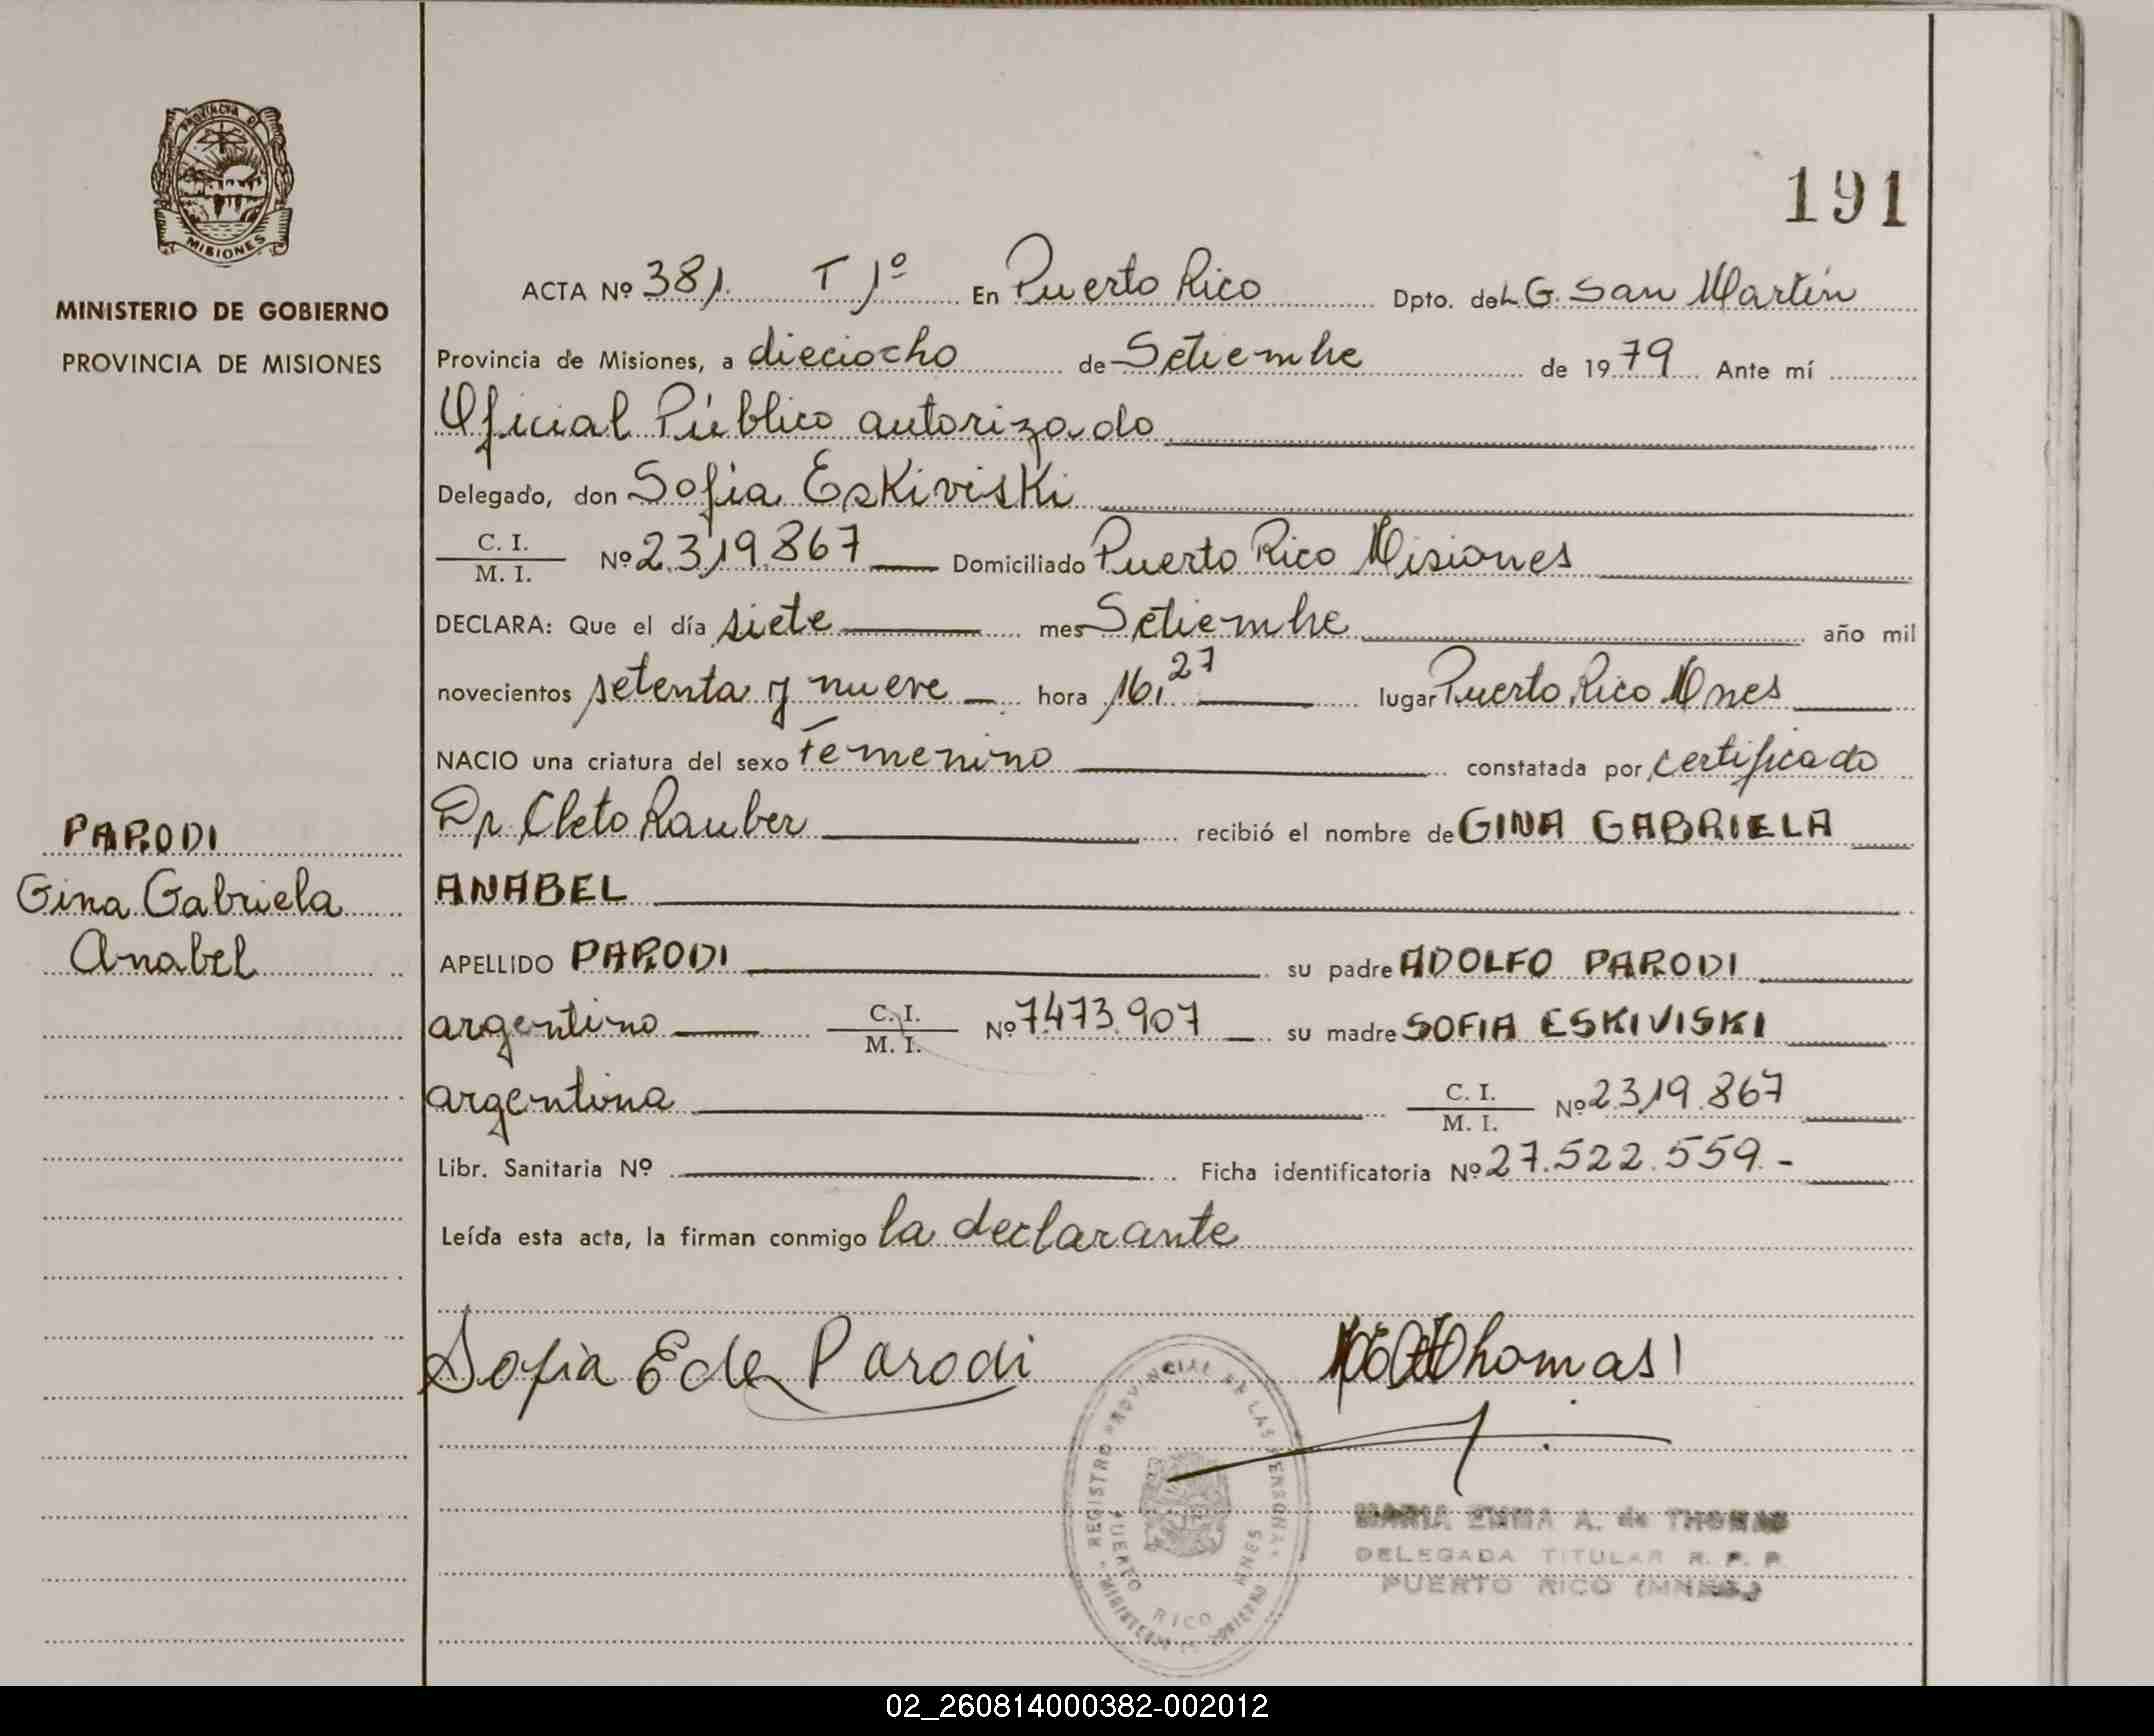 PROVINCIA D
MISIONES
MINISTERIO DE GOBIERNO
PROVINCIA DE MISIONES
191
ACTA Nº 381. T 1º En Puerto Rico Dpto. del L. G. San Martín
Provincia de Misiones, a dieciocho de Setiembre de 1979 Ante mí
Oficial Público autorizado
Delegado, don Sofia Eskiviski
C. I. / M. I. Nº 2.319.867 Domiciliado Puerto Rico Misiones
DECLARA: Que el día siete mes Setiembre año mil
novecientos setenta y nueve hora 16,27 lugar Puerto Rico Mnes
NACIO una criatura del sexo femenino constatada por certificado
Dr. Cleto Rauber recibió el nombre de GINA GABRIELA
ANABEL
APELLIDO PARODI su padre ADOLFO PARODI
argentino C. I. / M. I. Nº 7.473.907 su madre SOFIA ESKIVISKI
argentina C. I. / M. I. Nº 2.319.867
Libr. Sanitaria Nº Ficha identificatoria Nº 27.522.559.-
Leída esta acta, la firman conmigo la declarante
PARODI
Gina Gabriela
Anabel
Sofia E de Parodi
Thomas
REGISTRO PROVINCIAL DE LAS PERSONAS
PUERTO RICO MNES
MINISTERIO DE GOBIERNO
MARIA EMMA A. de THOMAS
DELEGADA TITULAR R. P. P.
PUERTO RICO (MNES.)
02_260814000382-002012